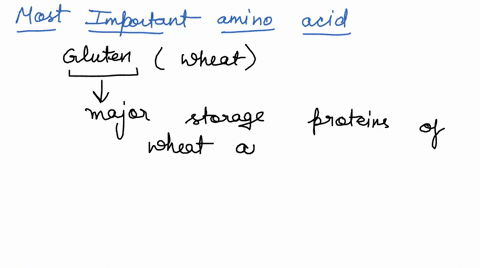 Most Important amino acid
Gluten (wheat)
major storage proteins of
wheat a